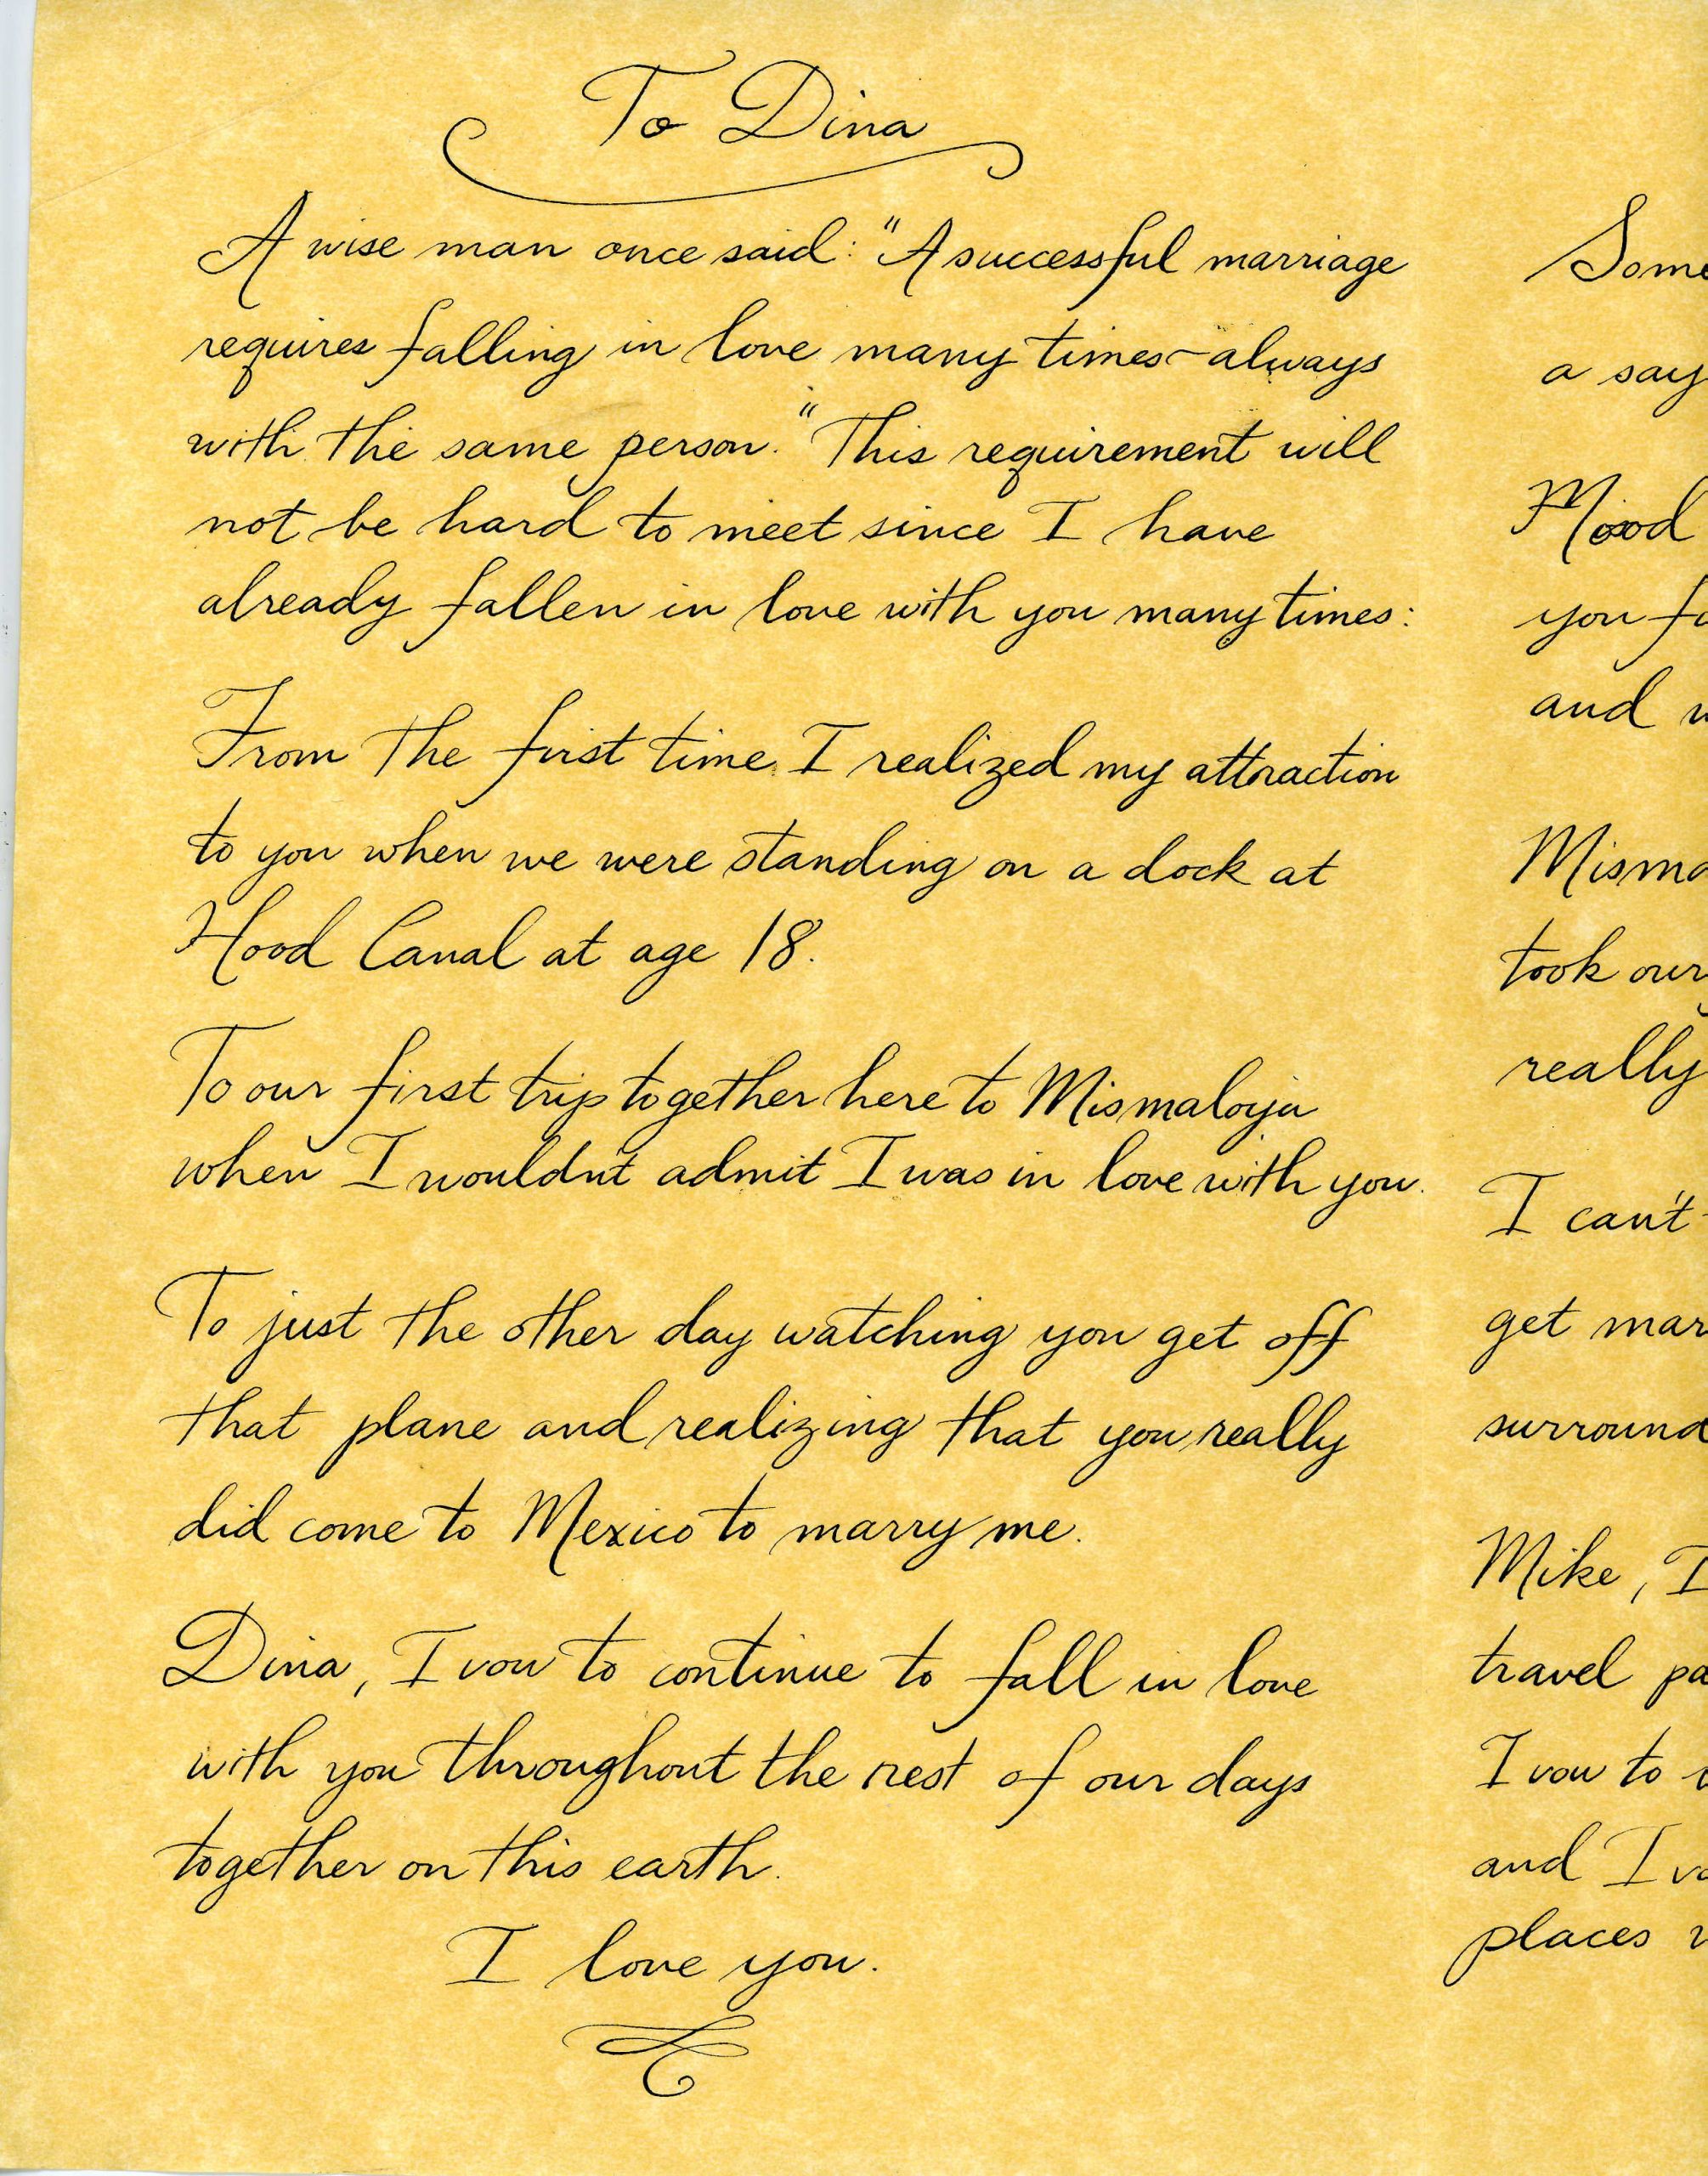 To Dina
A wise man once said: "A successful marriage
requires falling in love many times-always
with the same person." This requirement will
not be hard to meet since I have
already fallen in love with you many times:
From the first time I realized my attraction
to you when we were standing on a dock at
Hood Canal at age 18.
To our first trip together here to Mismaloya
when I wouldn't admit I was in love with you.
To just the other day watching you get off
that plane and realizing that you really
did come to Mexico to marry me.
Dina, I vow to continue to fall in love
with you throughout the rest of our days
together on this earth.
I love you.
Some
a say
Mood
you fa
and w
Misma
took our
really
I can't
get mar
surround
Mike, I
travel pa
I vow to
and I vo
places